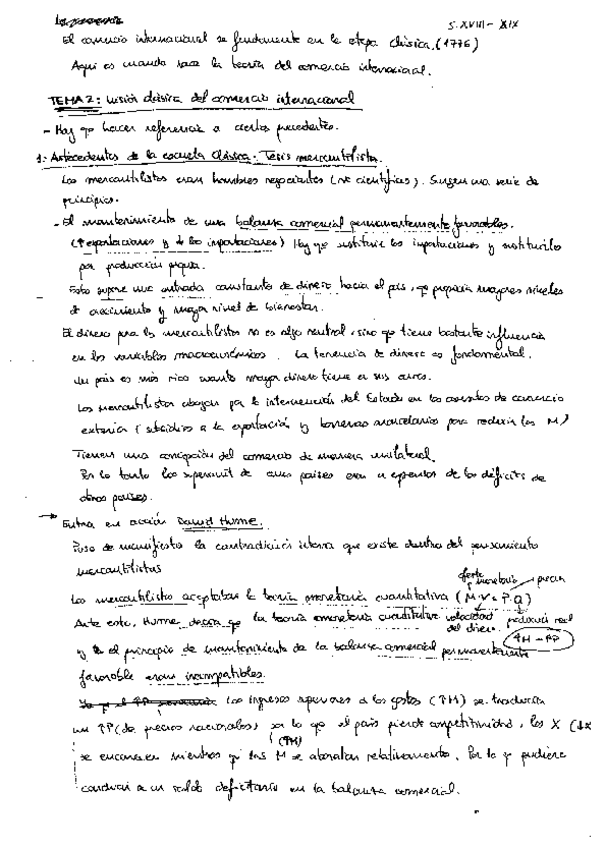 S. XVIII - XIX
El comercio internacional se fundamenta en la etapa clásica. (1776)
Aquí es cuando nace la teoría del comercio internacional.
TEMA 2: Visión clásica del comercio internacional
- Hay que hacer referencia a ciertos precedentes.
1.- Antecedentes de la escuela clásica. Tesis mercantilistas.
Los mercantilistas eran hombres negociantes (no científicos). Surgen una serie de
principios.
- El mantenimiento de una balanza comercial permanentemente favorable.
(↑ exportaciones y ↓ de las importaciones) Hay que sustituir las importaciones y sustituirlas
por producción propia.
Esto supone una entrada constante de dinero hacia el país, que propicia mayores niveles
de crecimiento y mayor nivel de bienestar.
El dinero para los mercantilistas no es algo neutral, sino que tiene bastante influencia
en las variables macroeconómicas. La tenencia de dinero es fundamental.
Un país es más rico cuanto mayor dinero tiene en sus arcas.
Los mercantilistas abogan por la intervención del Estado en los asuntos de comercio
exterior (subsidios a la exportación y barreras arancelarias para reducir las M)
Tienen una concepción del comercio de manera unilateral.
Por lo tanto los superávit de unos países eran a expensas de los déficits de
otros países.
→ Entra en acción David Hume.
Puso de manifiesto la contradicción interna que existe dentro del pensamiento
mercantilista
oferta monetaria precios
Los mercantilistas aceptaban la teoría monetaria cuantitativa (M·V = P·Q)
Ante esto, Hume decía que la teoría monetaria cuantitativa velocidad del dinero producción real
↑M - ↑P
y la el principio de mantenimiento de la balanza comercial permanentemente
favorable eran incompatibles.
Los ingresos superiores a los gastos (↑M) se traducían
un ↑P (de precios nacionales) por lo que el país pierde competitividad, las X (↓X)
se encarecen mientras que las M se abaratan relativamente. Por lo que pudiera
(↑M)
conducir a un saldo deficitario en la balanza comercial.